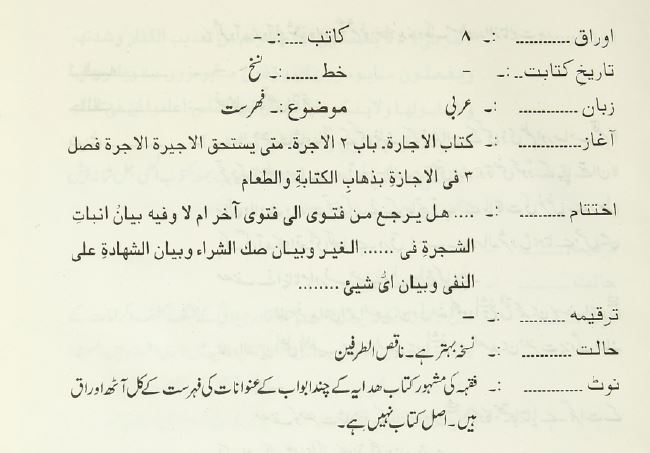 اوراق ........... :۔ ۸ کاتب .... :۔ –
تاریخ کتابت.. :۔ خط ...... :۔ نسخ
زبان ............ :۔ عربی موضوع :۔ فہرست
آغاز............ :۔ کتاب الاجارة۔ باب ۲ الاجرة۔ متی یستحق الاجیرة الاجرة فصل
۳ فی الاجازةِ بذهابِ الکتابةِ والطعام
اختتام .......... :۔ .... هل یرجع من فتوی الی فتوی آخر ام لا وفیه بیانُ انباتِ
الشجرةِ فی ...... الغیر وبیان صك الشراء وبیان الشهادةِ علی
النفی وبیان ایُّ شیئ ........
ترقیمه .......... :۔ –
حالت ........... :۔ نسخہ بہتر ہے۔ ناقص الطرفین
نوٹ ............ :۔ فقہ کی مشہور کتاب هدایہ کے چند ابواب کے عنوانات کی فہرست کے کل آٹھ اوراق
ہیں۔ اصل کتاب نہیں ہے۔